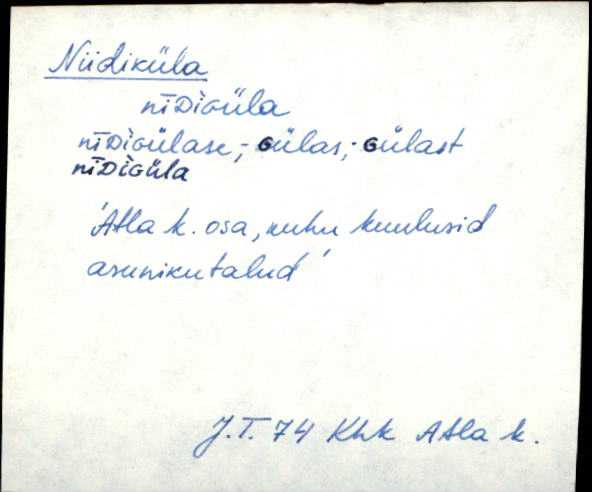 Niidiküla
nīᴅìɢüla
nīᴅìɢülase, -ɢülas, -ɢülast
nīᴅìɢüla
'Atla k. osa, kuhu kuulusid
asunikutalud'
J.T. 74 Khk Atla k.